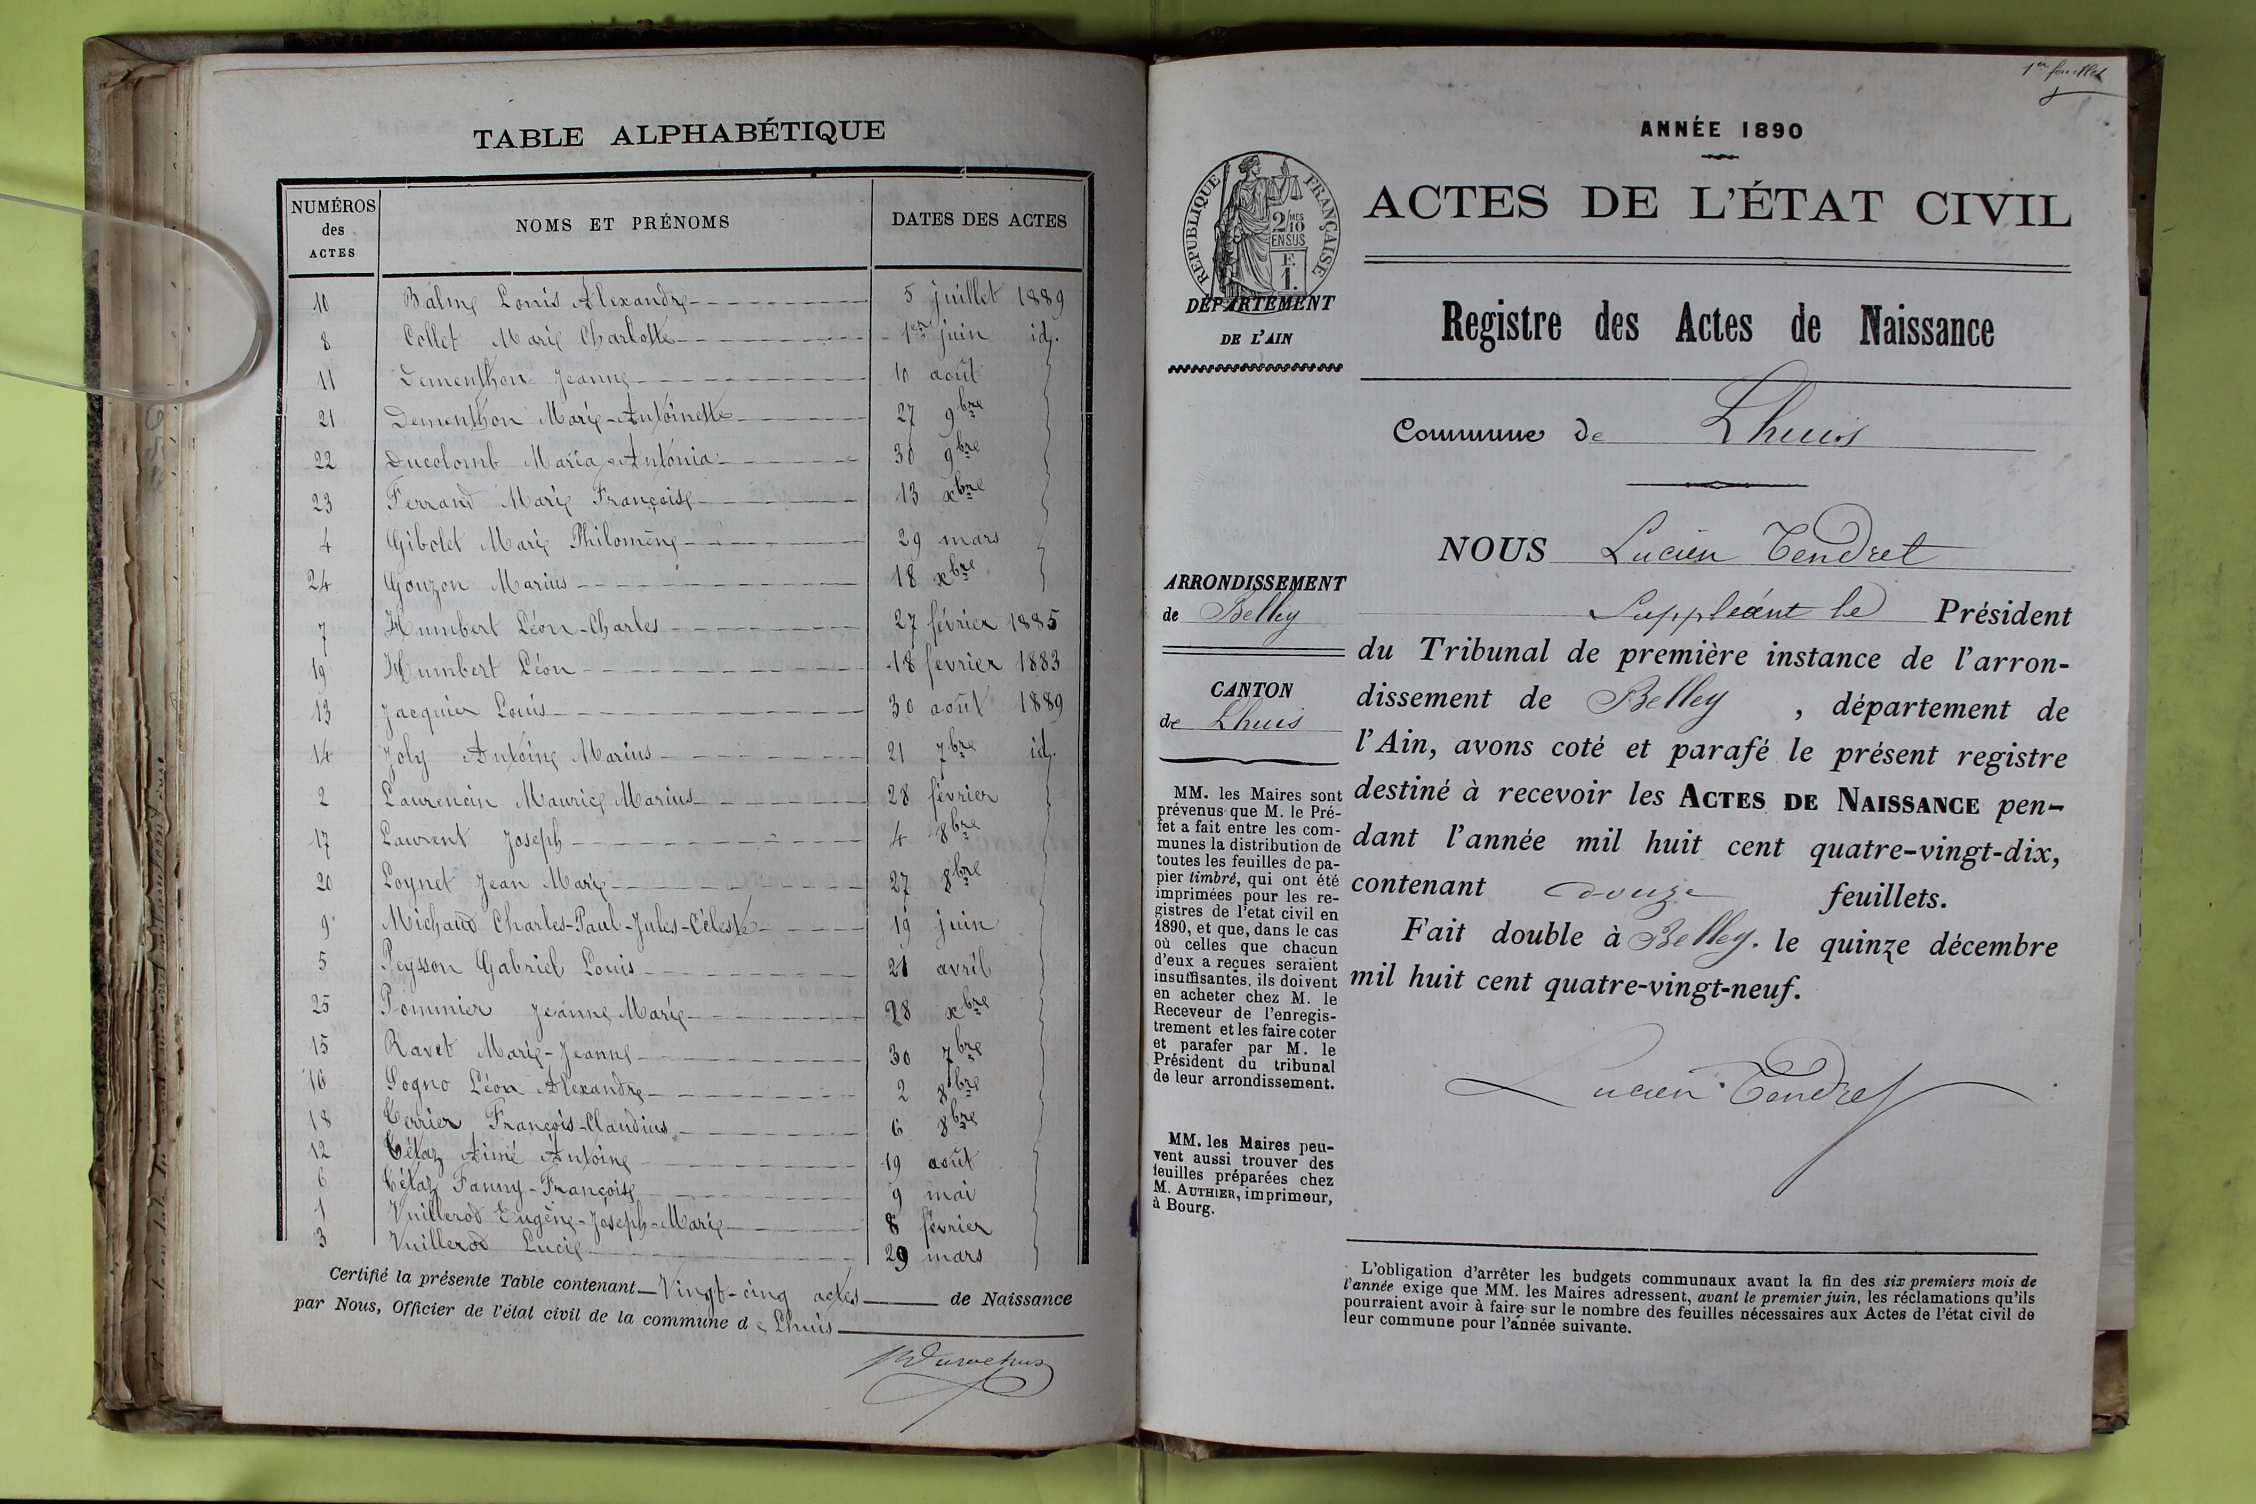 TABLE ALPHABÉTIQUE
NUMÉROS des ACTES NOMS ET PRÉNOMS DATES DES ACTES
10 Balme Louis Alexandre 5 juillet 1889
8 Collet Marie Charlotte 1er juin id.
11 Dementhon Jeanne 10 août
21 Dementhon Marie-Antoinette 27 9bre
22 Ducolomb Maria Antonia 30 9bre
23 Ferrand Marie Françoise 13 xbre
4 Gibolet Marie Philomène 29 mars
24 Gouzon Marius 18 xbre
7 Humbert Léon-Charles 27 février 1885
19 Humbert Léon 18 fevrier 1883
13 Jacquier Louis 30 août 1889
14 Joly Antoine Marius 21 7bre id.
2 Laurencin Maurice Marius 28 février
17 Laurent Joseph 4 8bre
20 Loynet Jean Marie 27 8bre
9 Michaud Charles-Paul-Jules-Céleste 19 juin
5 Peysson Gabriel Louis 21 avril
25 Pommier Jeanne Marie 28 xbre
15 Ravet Marie-Jeanne 30 7bre
16 Sogno Léon Alexandre 2 8bre
18 Terrier François-Claudius 6 8bre
12 Tétaz Aimé Antoine 19 août
6 Tétaz Fanny-Françoise 9 mai
1 Vuillerod Eugène-Joseph-Marie 8 février
3 Vuillerod Lucie 29 mars
Certifié la présente Table contenant Vingt-cinq actes de Naissance
par Nous, Officier de l'état civil de la commune de Lhuis
1er feuillet
ANNÉE 1890
RÉPUBLIQUE FRANÇAISE
2/10MES
EN SUS
F.
1.
ACTES DE L'ÉTAT CIVIL
DÉPARTEMENT
DE L'AIN
Registre des Actes de Naissance
Commune de Lhuis
NOUS Lucien Tendret
Suppléant le Président
du Tribunal de première instance de l'arron-
dissement de Belley, département de
l'Ain, avons coté et parafé le présent registre
destiné à recevoir les ACTES DE NAISSANCE pen-
dant l'année mil huit cent quatre-vingt-dix,
contenant douze feuillets.
Fait double à Belley. le quinze décembre
mil huit cent quatre-vingt-neuf.
Lucien Tendret
ARRONDISSEMENT
de Belley
CANTON
de Lhuis
MM. les Maires sont
prévenus que M. le Pré-
fet a fait entre les com-
munes la distribution de
toutes les feuilles de pa-
pier timbré, qui ont été
imprimées pour les re-
gistres de l'etat civil en
1890, et que, dans le cas
où celles que chacun
d'eux a reçues seraient
insuffisantes, ils doivent
en acheter chez M. le
Receveur de l'enregis-
trement et les faire coter
et parafer par M. le
Président du tribunal
de leur arrondissement.
MM. les Maires peu-
vent aussi trouver des
feuilles préparées chez
M. AUTHIER, imprimeur,
à Bourg.
L'obligation d'arrêter les budgets communaux avant la fin des six premiers mois de
l'année exige que MM. les Maires adressent, avant le premier juin, les réclamations qu'ils
pourraient avoir à faire sur le nombre des feuilles nécessaires aux Actes de l'état civil de
leur commune pour l'année suivante.